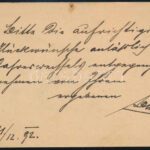 Bitte Sie aufrichtige
Glückwünsche anläßlich
Jahreswechsels entgegen
nehmen von Ihrem
ergebenen
/12. 92.